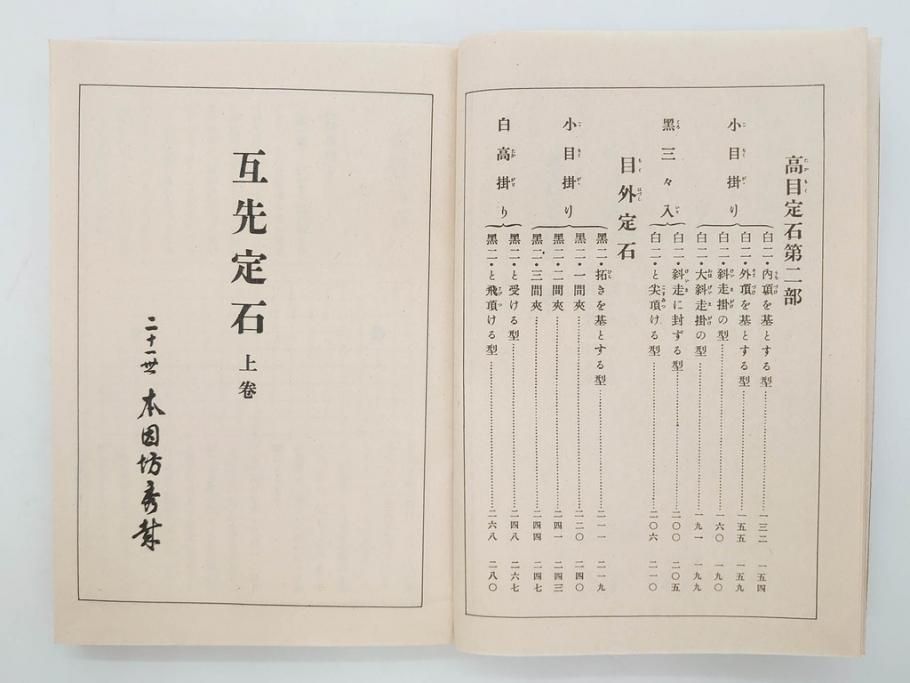 高目定石第二部
小目掛り
白二・内頂を基とする型 一三二 一五四
白二・外頂を基とする型 一五五 一五九
白二・斜走掛の型 一六〇 一九〇
白二・大斜走掛の型 一九一 一九九
黑三々入
白二・斜走に封ずる型 二〇〇 二〇五
白二・と尖頂ける型 二〇六 二一〇
目外定石
小目掛り
黑二・拓きを基とする型 二一一 二一九
黑二・一間夾 二二〇 二四〇
黑二・二間夾 二四一 二四三
黑二・三間夾 二四四 二四七
白高掛り
黑二・と受ける型 二四八 二六七
黑二・と飛頂ける型 二六八 二八〇
互先定石 上卷
二十一世 本因坊秀哉